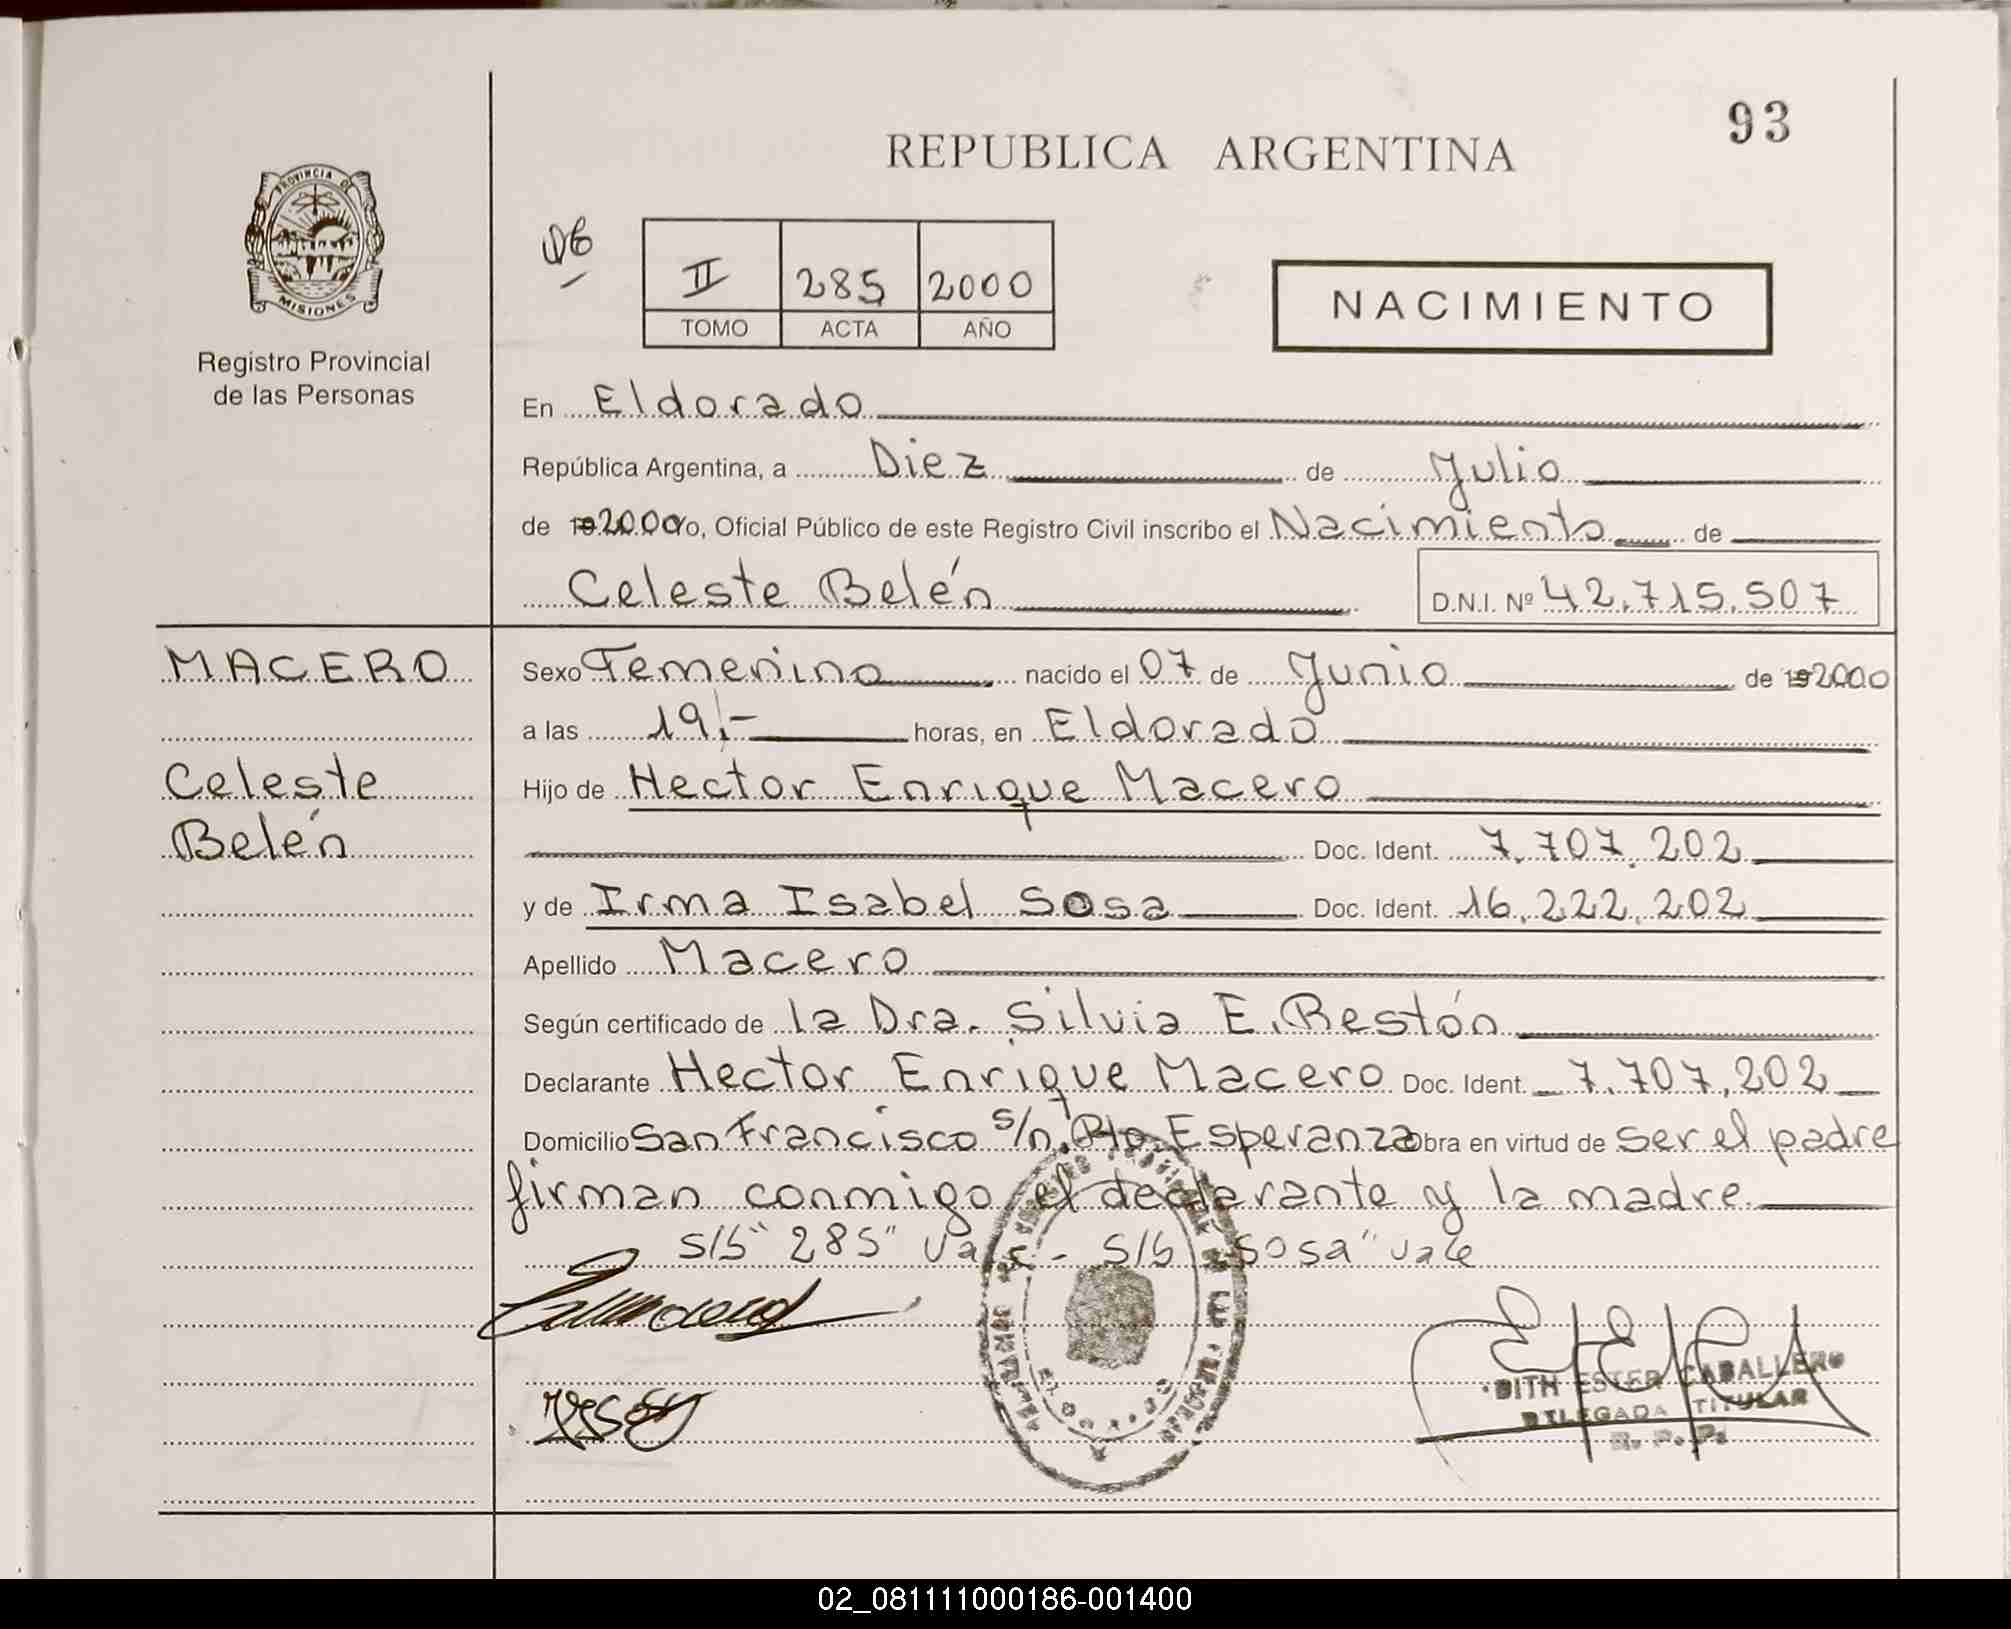 93
REPUBLICA ARGENTINA
PROVINCIA DE
MISIONES
Registro Provincial
de las Personas
II 285 2000
TOMO ACTA AÑO
NACIMIENTO
En Eldorado
República Argentina, a Diez de Julio
de 2000 Yo, Oficial Público de este Registro Civil inscribo el Nacimiento de
Celeste Belén D.N.I. Nº 42.715.507
MACERO
Celeste
Belén
Sexo Femenino nacido el 07 de Junio de 2000
a las 19,- horas, en Eldorado
Hijo de Hector Enrique Macero
Doc. Ident. 7.707.202
y de Irma Isabel Sosa Doc. Ident. 16.222.202
Apellido Macero
Según certificado de la Dra. Silvia E. Restón
Declarante Hector Enrique Macero Doc. Ident. 7.707.202
Domicilio San Francisco s/n. Pto. Esperanza Obra en virtud de ser el padre
firman conmigo el declarante y la madre.
S/b "285" Vale - S/b "Sosa" vale
DITH ESTER CABALLERO
DELEGADA TITULAR
R. P. P.
02_081111000186-001400